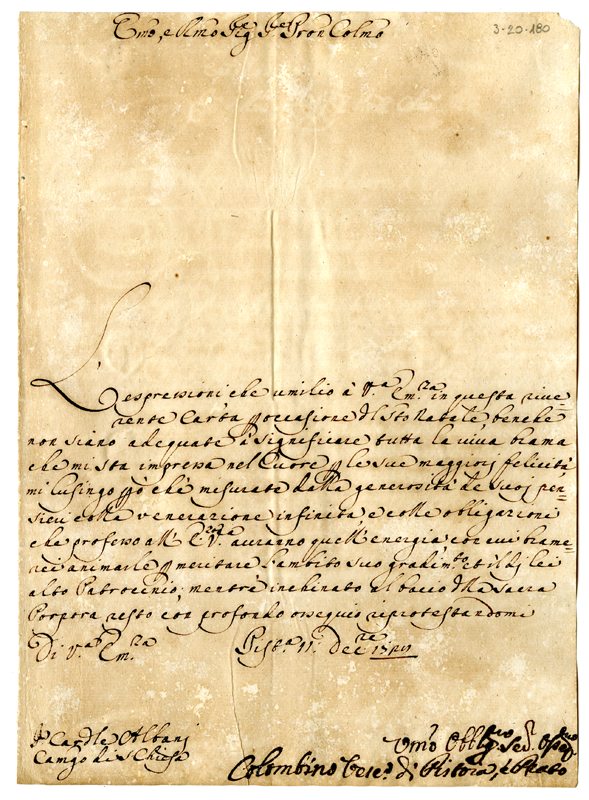 3-20-180
Emo, e Rmo Sig.re Sig.re Pron Colmo
L'espressioni che umilio à V.a Em.za in questa rive=
rente Carta p occasione dl Sto Natale, benche
non siano adequate à significare tutta la viva brama
che mi sta impressa nel Cuore p le sue maggiorj felicità
mi lusingo pò che misurate dalla generosità de suoj pen=
sieri e dlla venerazione infinita, e colle obligazioni
che professo all' E.V.a avranno quell'energia, con cui brame=
rei animarle p meritare l'ambito suo gradim.to, et il dj lei
alto Patrocinio; mentre inchinato al bacio dlla Sacra
Porpora resto con profondo ossequio riprotestandomi
Di V.a Em.za Pist.a 11: Dec.re
S. Cardle Albanj
Camgo di S. Chiesa
Vmo Obblg.mo Sed.
Colombino Vesc.o di Pistoia, e Prato